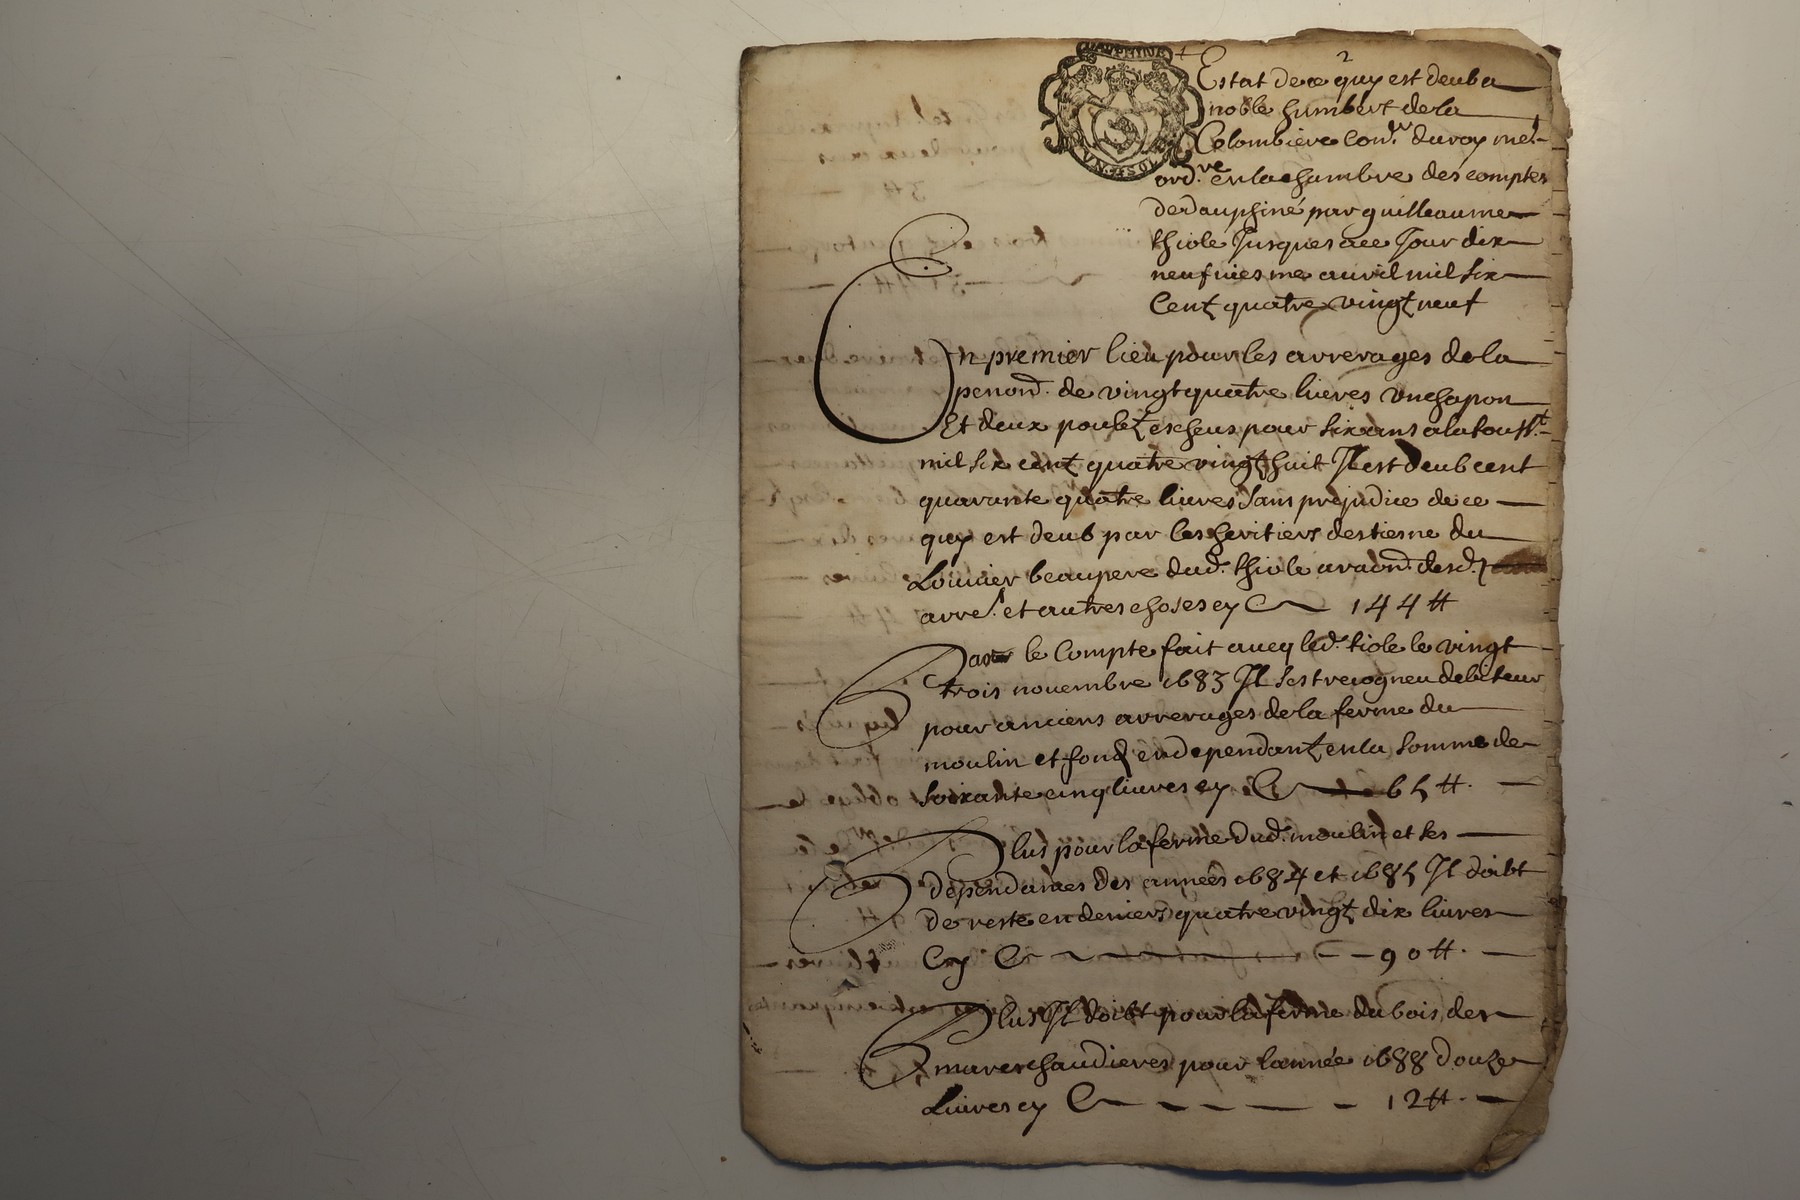 DAUPHINE
VN SOL
2
Estat de ce quy est deub a
noble humbert de la
Colombiere con.er du roy me.
ord.re en la chambre des comptes
de dauphiné par guilleaume
thiole Jusques a ce Jour dix
neufviesme auvril mil six
Centz quatre vingtz neuf
En premier lieu pour les arrerages de la
penon. de vingt quatre livres un chapon
Et deux pouletz escheus pour six ans a la touss.t
mil six centz quatre vingtz huit Il est deub cent
quarante quatre livres sans prejudice de ce
quy est deub par les heritiers destiene du
Louvier beaupere dud. thiole a raon. desd.
arre. et autres choses cy 144 ₶
Par le Compte fait avecq led. tiole le vingt
trois novembre 1683 Il sest recogneu debiteur
pour anciens arrerages de la ferme du
moulin et fondz en dependantz en la somme de
soixante cinq livres cy 65 ₶.
Plus pour la ferme dud. moulin et ses
dependances des années 1684 et 1685 Il doibt
de reste en deniers quatre vingtz dix livres
Cy 90 ₶.
Plus Il doibt pour la ferme du bois des
mareschaudieres pour lannée 1688 douze
Livres cy 12 ₶.